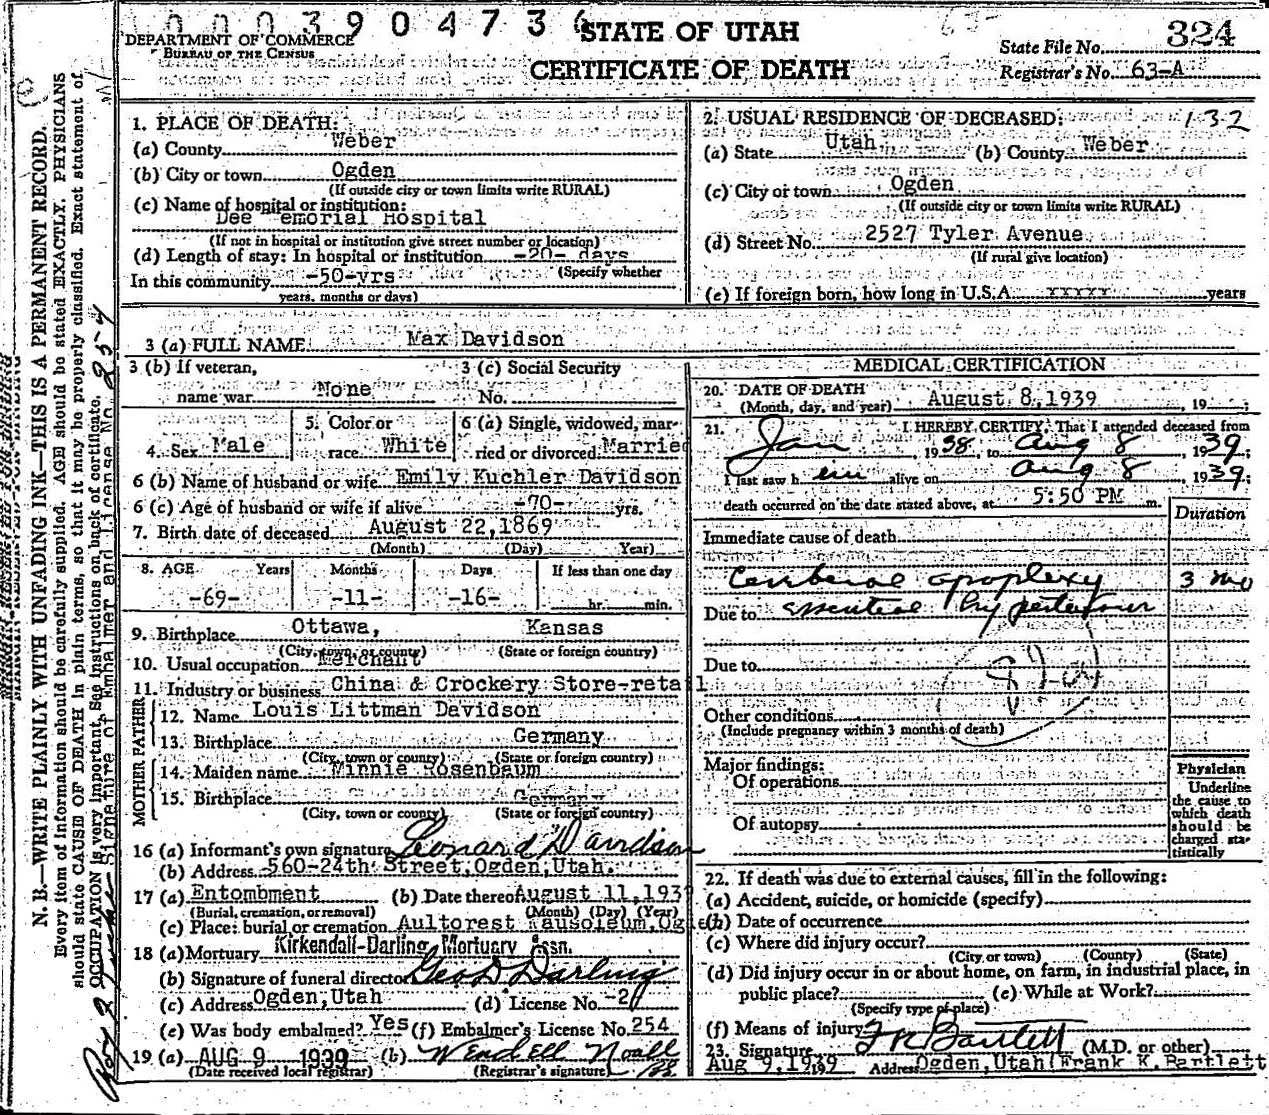 0003904736
STATE OF UTAH
CERTIFICATE OF DEATH
DEPARTMENT OF COMMERCE
BUREAU OF THE CENSUS
State File No. 324
Registrar's No. 63-A
132
N. B.—WRITE PLAINLY WITH UNFADING INK—THIS IS A PERMANENT RECORD.
Every item of information should be carefully supplied. AGE should be stated EXACTLY. PHYSICIANS
should state CAUSE OF DEATH in plain terms, so that it may be properly classified. Exact statement of
OCCUPATION is very important. See instructions on back of certificate.
Signature of Embalmer and License No. 254
1. PLACE OF DEATH:
(a) County Weber
(b) City or town Ogden
(If outside city or town limits write RURAL)
(c) Name of hospital or institution:
Dee Memorial Hospital
(If not in hospital or institution give street number or location)
(d) Length of stay: In hospital or institution -20- days
(Specify whether
In this community -50-yrs
years, months or days)
2. USUAL RESIDENCE OF DECEASED:
(a) State Utah (b) County Weber
(c) City or town Ogden
(If outside city or town limits write RURAL)
(d) Street No. 2527 Tyler Avenue
(If rural give location)
(e) If foreign born, how long in U.S.A. xxxxx years
3 (a) FULL NAME Max Davidson
3 (b) If veteran, name war None
3 (c) Social Security No.
4. Sex Male
5. Color or race White
6 (a) Single, widowed, married or divorced Married
6 (b) Name of husband or wife Emily Kuchler Davidson
6 (c) Age of husband or wife if alive -70- yrs.
7. Birth date of deceased August 22,1869
(Month) (Day) Year)
8. AGE Years Months Days If less than one day
-69- -11- -16- hr. min.
9. Birthplace Ottawa, Kansas
(City, town, or county) (State or foreign country)
10. Usual occupation Merchant
11. Industry or business China & Crockery Store-retail
FATHER
12. Name Louis Littman Davidson
13. Birthplace Germany
(City, town or county) (State or foreign country)
MOTHER
14. Maiden name Minnie Rosenbaum
15. Birthplace Germany
(City, town or county) (State or foreign country)
16 (a) Informant's own signature Leonard Davidson
(b) Address 560-24th Street, Ogden, Utah.
17 (a) Entombment (b) Date thereof August 11, 1939
(Burial, cremation, or removal) (Month) (Day) (Year)
(c) Place: burial or cremation Aultorest Mausoleum, Ogden
18 (a) Mortuary Kirkendall-Darling Mortuary Assn.
(b) Signature of funeral director Geo D Darling
(c) Address Ogden, Utah (d) License No. -20
(e) Was body embalmed? Yes (f) Embalmer's License No. 254
19 (a) AUG 9 1939 (b) Wendell Noall
(Date received local registrar) (Registrar's signature)
MEDICAL CERTIFICATION
20. DATE OF DEATH
(Month, day, and year) August 8, 1939, 19 ;
21. I HEREBY CERTIFY, That I attended deceased from
Jan, 1938, to Aug 8, 1939;
I last saw h em alive on Aug 8, 1939;
death occurred on the date stated above, at 5:50 PM m.
Duration
Immediate cause of death
Cerebral apoplexy 3 mo
Due to essential hypertension
Due to
Other conditions
(Include pregnancy within 3 months of death)
Major findings:
Of operations
Of autopsy
Physician
Underline
the cause to
which death
should be
charged sta-
tistically
22. If death was due to external causes, fill in the following:
(a) Accident, suicide, or homicide (specify)
(b) Date of occurrence
(c) Where did injury occur?
(City or town) (County) (State)
(d) Did injury occur in or about home, on farm, in industrial place, in
public place? (e) While at Work?
(Specify type of place)
(f) Means of injury
23. Signature F K Bartlett (M.D. or other)
Aug 9, 1939 Address Ogden, Utah (Frank K. Bartlett